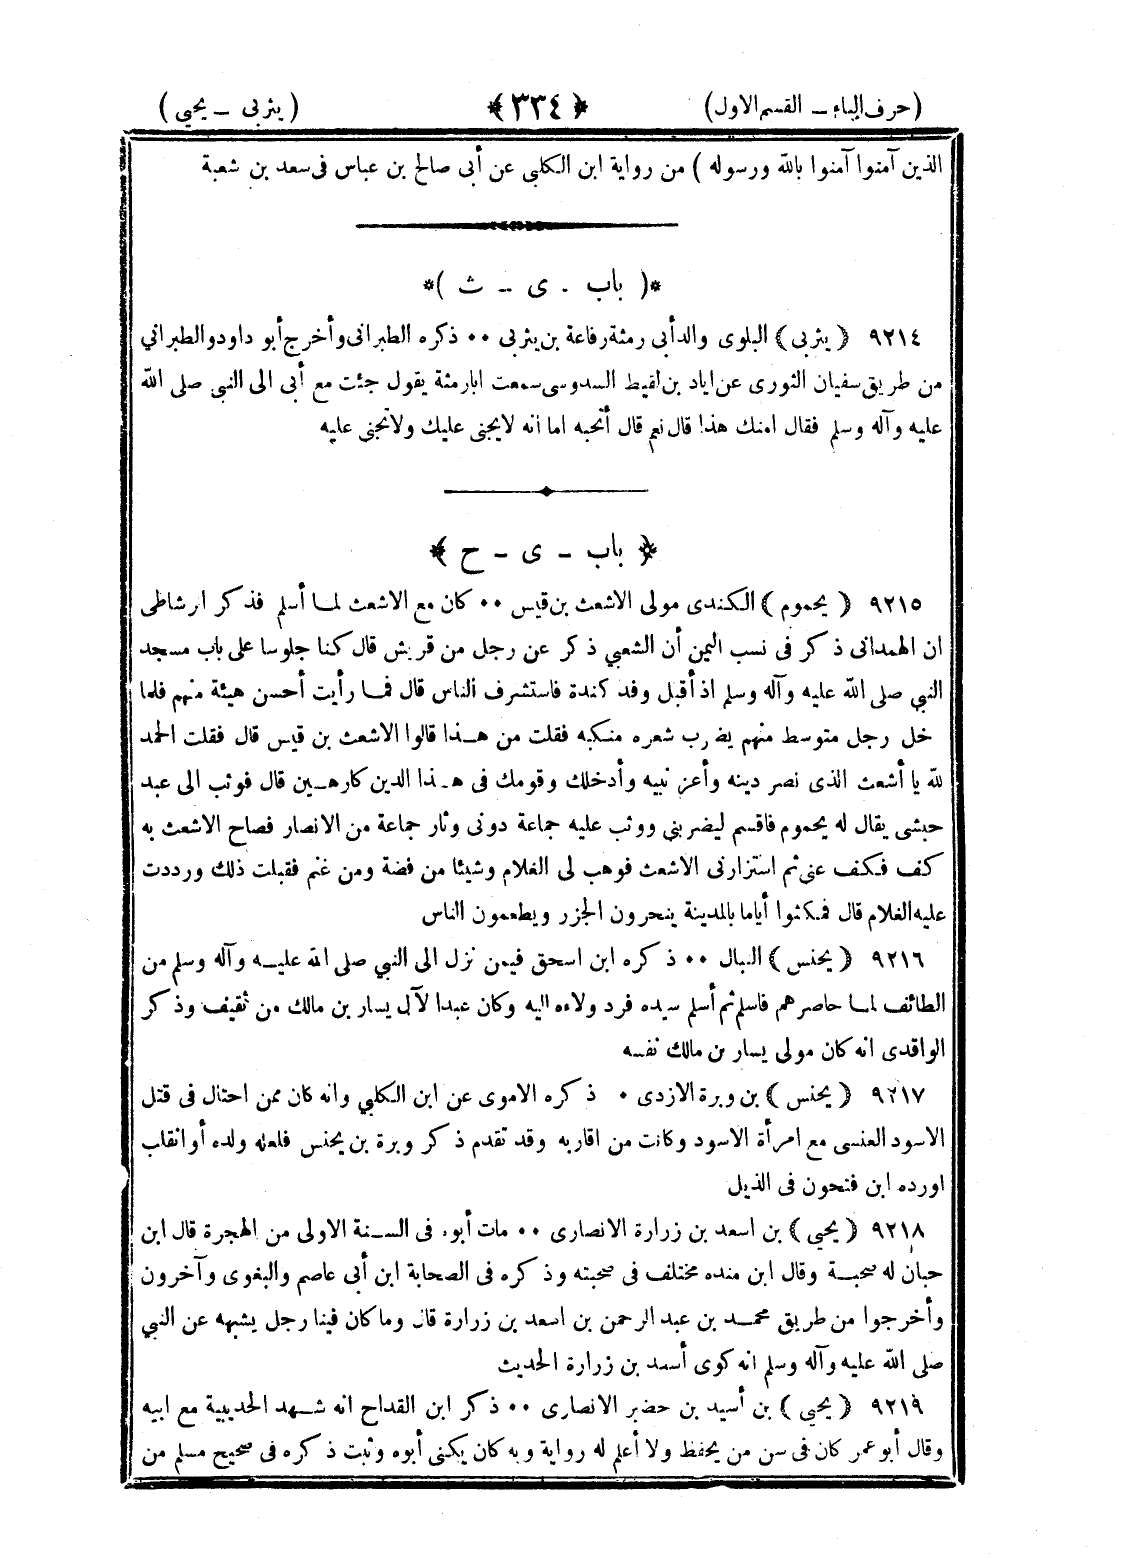 (حرف الياء ــ القسم الاول) ﴿٣٣٤﴾ (يثربى ــ يحيي)
الذين آمنوا آمنوا بالله ورسوله ) من رواية ابن الكلبى عن أبى صالح بن عباس فى سعد بن شعبة
*( باب . ى - ث )*
٩٢١٤ ﴿ يثربى ﴾ البلوى والد أبى رمثة رفاعة بن يثربى ٠٠ ذكره الطبرانى وأخرج أبو داود والطبراني
من طريق سفيان الثورى عن اياد بن لقيط السدوسى سمعت ابا رمثة يقول جئت مع أبى الى النبي صلى الله
عليه وآله وسلم فقال ابنك هذا قال نعم قال أتحبه اما انه لايجنى عليك ولاتجنى عليه
﴿ باب - ى - ح ﴾
٩٢١٥ ﴿ يحموم ﴾ الكندى مولى الاشعث بن قيس ٠٠ كان مع الاشعث لما أسلم فذكر ارشاطى
ان الهمدانى ذكر فى نسب اليمن أن الشعبي ذكر عن رجل من قريش قال كنا جلوسا على باب مسجد
النبي صلى الله عليه وآله وسلم اذ أقبل وفد كندة فاستشرف الناس قال فما رأيت أحسن هيئة منهم فلما
خل رجل متوسط منهم يضرب شعره منكبه فقلت من هذا قالوا الاشعث بن قيس قال فقلت الحمد
لله يا أشعث الذى نصر دينه وأعز نبيه وأدخلك وقومك فى هذا الدين كارهين قال فوثب الى عبد
حبشى يقال له يحموم فاقسم ليضربني ووثب عليه جماعة دونى وثار جماعة من الانصار فصاح الاشعث به
كف فكف عنى ثم استزارنى الاشعث فوهب لى الغلام وشيئا من فضة ومن غنم فقبلت ذلك ورددت
عليه الغلام قال فمكثوا أياما بالمدينة ينحرون الجزر ويطعمون الناس
٩٢١٦ ﴿ يحنس ﴾ النبال ٠٠ ذكره ابن اسحق فيمن نزل الى النبي صلى الله عليه وآله وسلم من
الطائف لما حاصرهم فاسلم ثم أسلم سيده فرد ولاءه اليه وكان عبدا لآل يسار بن مالك من ثقيف وذكر
الواقدى انه كان مولى يسار بن مالك نفسه
٩٢١٧ ﴿ يحنس ﴾ بن وبرة الازدى ٠ ذكره الاموى عن ابن الكلبي وانه كان ممن احتال فى قتل
الاسود العنسى مع امرأة الاسود وكانت من اقاربه وقد تقدم ذكر وبرة بن يحنس فلعله ولده أو انقلب
اورده ابن فتحون فى الذيل
٩٢١٨ ﴿ يحيي ﴾ بن اسعد بن زرارة الانصارى ٠٠ مات أبوه فى السنة الاولى من الهجرة قال ابن
حبان له صحبة وقال ابن منده مختلف فى صحبته وذكره فى الصحابة ابن أبي عاصم والبغوى وآخرون
وأخرجوا من طريق محمد بن عبد الرحمن بن اسعد بن زرارة قال وماكان فينا رجل يشبهه عن النبي
صلى الله عليه وآله وسلم انه كوى أسعد بن زرارة الحديث
٩٢١٩ ﴿ يحيي ﴾ بن أسيد بن حضير الانصارى ٠٠ ذكر ابن القداح انه شهد الحديبية مع ابيه
وقال أبو عمر كان فى سن من يحفظ ولا أعلم له رواية وبه كان يكنى أبوه وثبت ذكره فى صحيح مسلم من